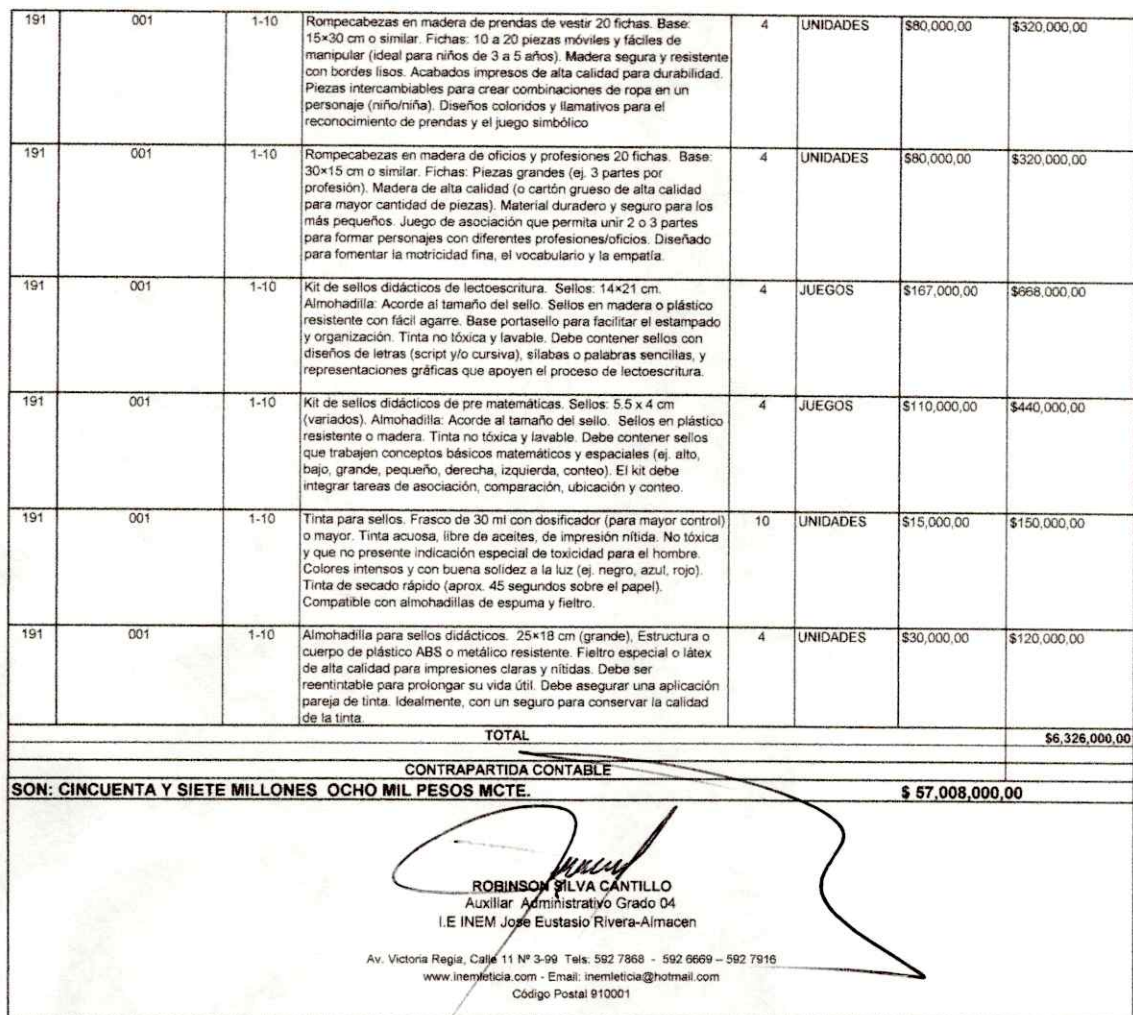 191 001 1-10 Rompecabezas en madera de prendas de vestir 20 fichas. Base: 4 UNIDADES $80,000,00 $320,000,00
15×30 cm o similar. Fichas: 10 a 20 piezas móviles y fáciles de
manipular (ideal para niños de 3 a 5 años). Madera segura y resistente
con bordes lisos. Acabados impresos de alta calidad para durabilidad.
Piezas intercambiables para crear combinaciones de ropa en un
personaje (niño/niña). Diseños coloridos y llamativos para el
reconocimiento de prendas y el juego simbólico
191 001 1-10 Rompecabezas en madera de oficios y profesiones 20 fichas. Base: 4 UNIDADES $80,000,00 $320,000,00
30×15 cm o similar. Fichas: Piezas grandes (ej. 3 partes por
profesión). Madera de alta calidad (o cartón grueso de alta calidad
para mayor cantidad de piezas). Material duradero y seguro para los
más pequeños. Juego de asociación que permita unir 2 o 3 partes
para formar personajes con diferentes profesiones/oficios. Diseñado
para fomentar la motricidad fina, el vocabulario y la empatía.
191 001 1-10 Kit de sellos didácticos de lectoescritura. Sellos: 14×21 cm. 4 JUEGOS $167,000,00 $668,000,00
Almohadilla: Acorde al tamaño del sello. Sellos en madera o plástico
resistente con fácil agarre. Base portasello para facilitar el estampado
y organización. Tinta no tóxica y lavable. Debe contener sellos con
diseños de letras (script y/o cursiva), sílabas o palabras sencillas, y
representaciones gráficas que apoyen el proceso de lectoescritura.
191 001 1-10 Kit de sellos didácticos de pre matemáticas. Sellos: 5.5 x 4 cm 4 JUEGOS $110,000,00 $440,000,00
(variados). Almohadilla: Acorde al tamaño del sello. Sellos en plástico
resistente o madera. Tinta no tóxica y lavable. Debe contener sellos
que trabajen conceptos básicos matemáticos y espaciales (ej. alto,
bajo, grande, pequeño, derecha, izquierda, conteo). El kit debe
integrar tareas de asociación, comparación, ubicación y conteo.
191 001 1-10 Tinta para sellos. Frasco de 30 ml con dosificador (para mayor control) 10 UNIDADES $15,000,00 $150,000,00
o mayor. Tinta acuosa, libre de aceites, de impresión nítida. No tóxica
y que no presente indicación especial de toxicidad para el hombre.
Colores intensos y con buena solidez a la luz (ej. negro, azul, rojo).
Tinta de secado rápido (aprox. 45 segundos sobre el papel).
Compatible con almohadillas de espuma y fieltro.
191 001 1-10 Almohadilla para sellos didácticos. 25×18 cm (grande), Estructura o 4 UNIDADES $30,000,00 $120,000,00
cuerpo de plástico ABS o metálico resistente. Fieltro especial o látex
de alta calidad para impresiones claras y nítidas. Debe ser
reentintable para prolongar su vida útil. Debe asegurar una aplicación
pareja de tinta. Idealmente, con un seguro para conservar la calidad
de la tinta.
TOTAL $6,326,000,00
CONTRAPARTIDA CONTABLE
SON: CINCUENTA Y SIETE MILLONES OCHO MIL PESOS MCTE. $ 57,008,000,00
ROBINSON SILVA CANTILLO
Auxiliar Administrativo Grado 04
I.E INEM Jose Eustasio Rivera-Almacen
Av. Victoria Regia, Calle 11 Nº 3-99 Tels: 592 7868 - 592 6669 – 592 7916
www.inemleticia.com - Email: inemleticia@hotmail.com
Código Postal 910001